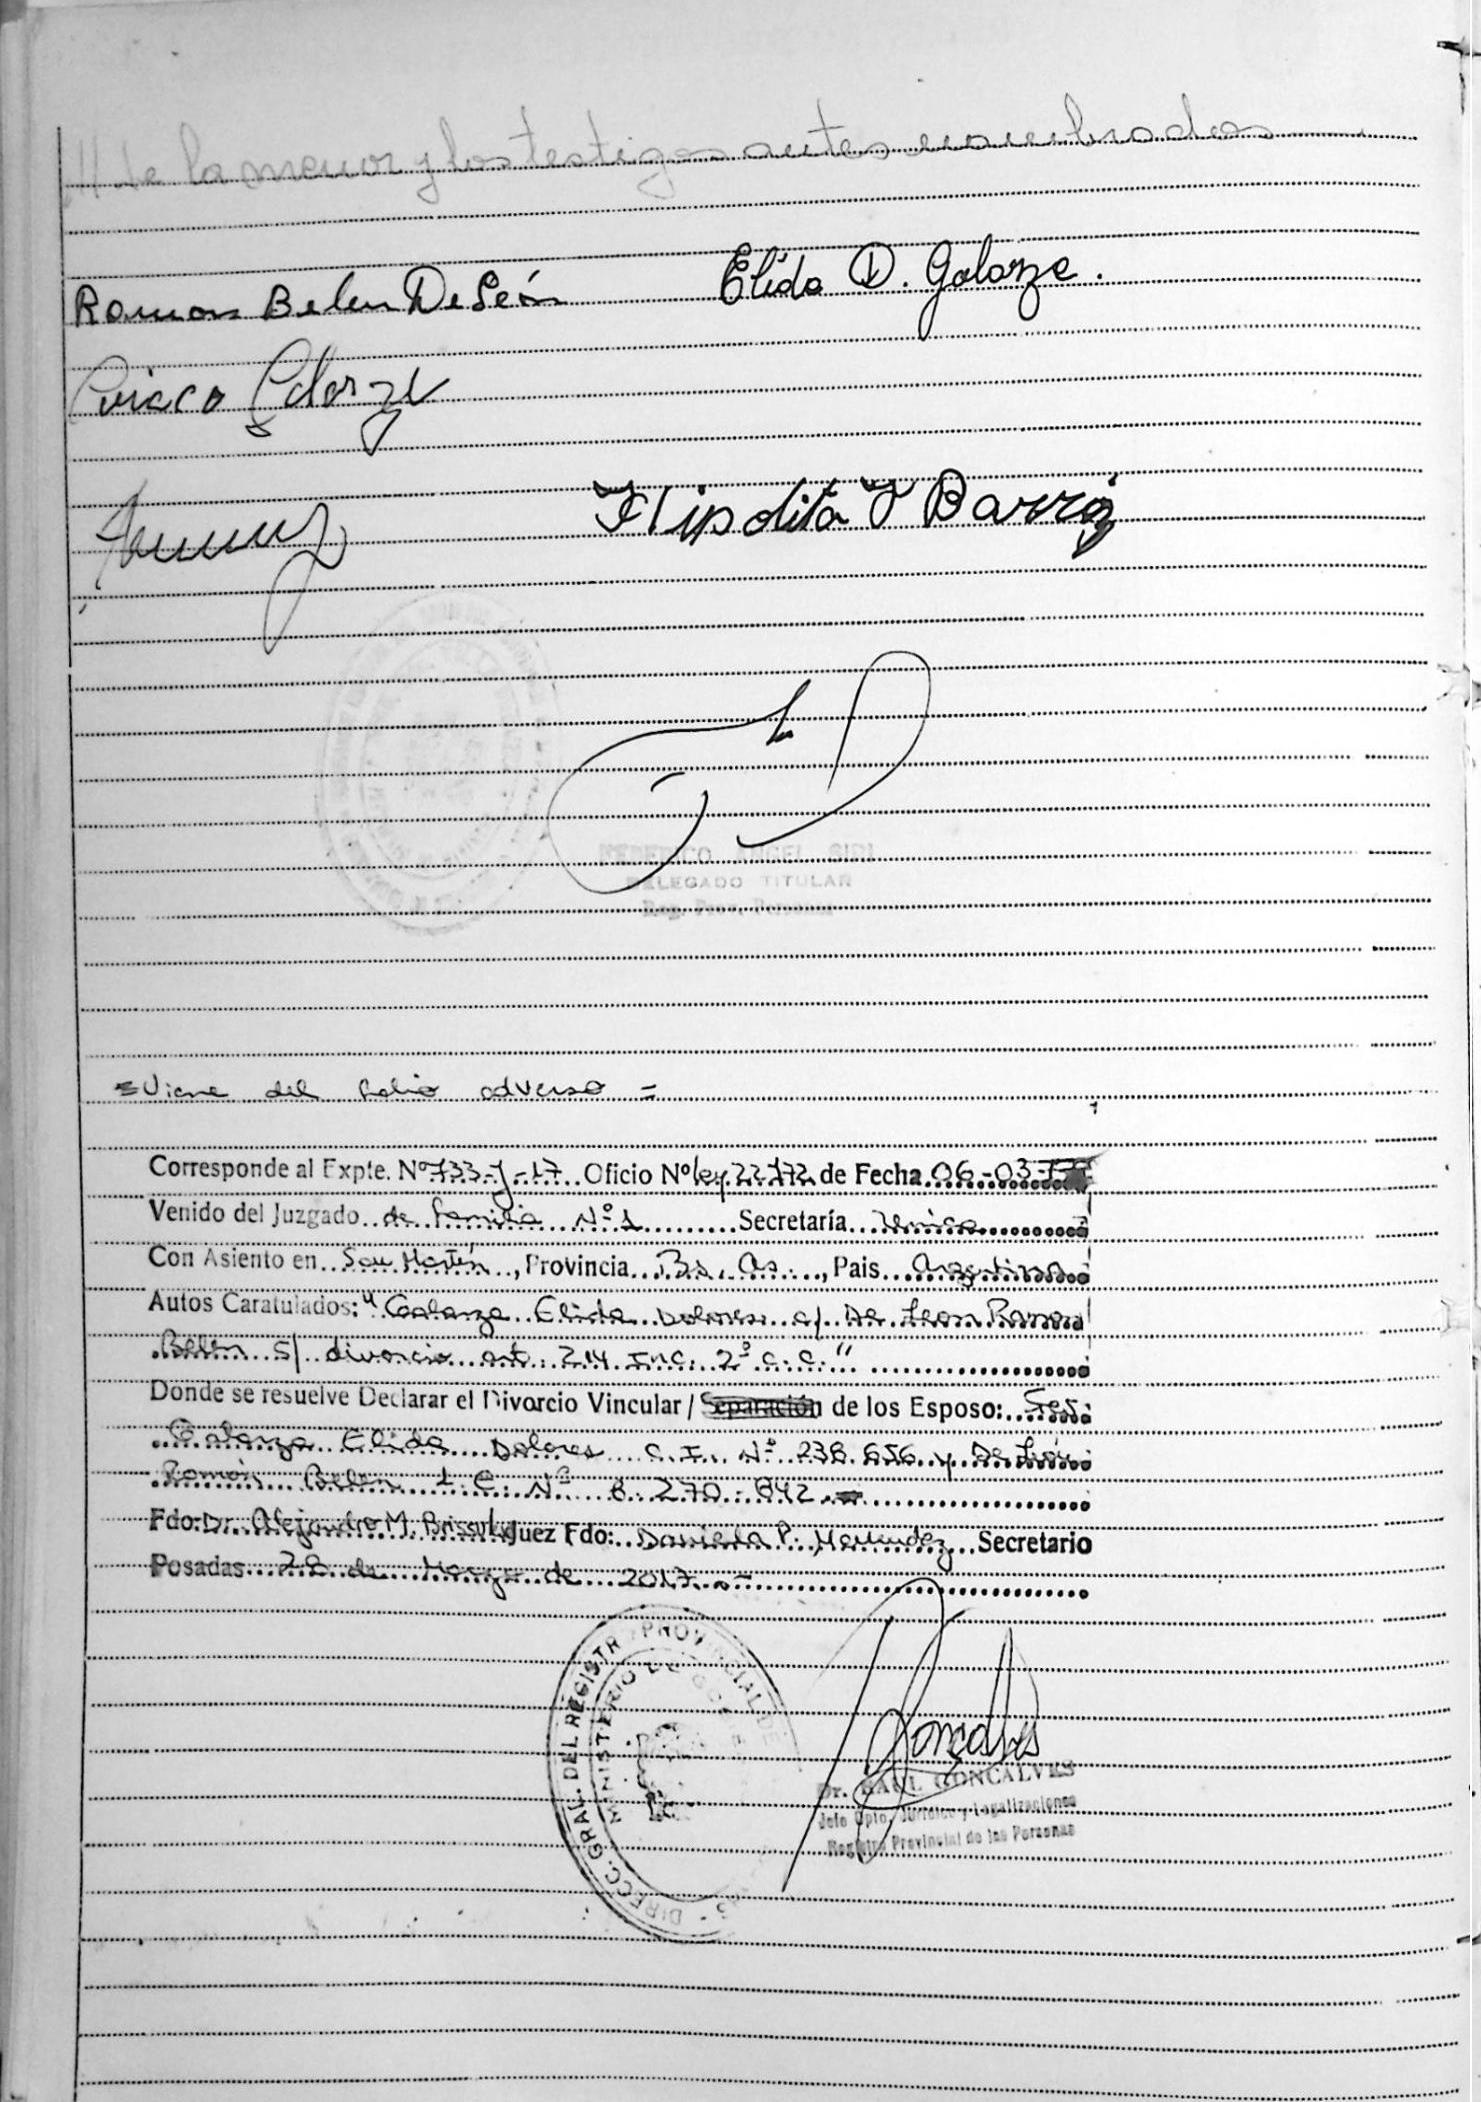 /// de la menor y los testigos antes nombrados
Ramon Belen De León
Elida D. Galarza.
Hipolita Y Barrios
FEDERICO ANGEL
DELEGADO TITULAR
Reg. Prov. Personas
= Viene del folio adverso =
Corresponde al Expte. Nº 733-J-17 Oficio Nº ley 22172 de Fecha 06-03-17
Venido del Juzgado de familia Nº 1 Secretaría Unica
Con Asiento en San Martín, Provincia Bs. As., Pais Argentina
Autos Caratulados: "Galarza Elida Dolores c/ De Leon Ramon
Belen S/ divorcio art. 214 inc. 2º C.C."
Donde se resuelve Declarar el Divorcio Vincular / Separación de los Esposo: Sres.
Galarza Elida Dolores C.I. Nº 238.656 y De León
Ramón Belen L.E. Nº 8.270.842
Fdo: Dr. Alejandro M. Juez Fdo: Daniela P. Menendez Secretario
Posadas 28 de Marzo de 2017.-
DIRECC. GRAL. DEL REGISTRO PROVINCIAL DE
MINISTERIO DE
Gonçalves
Dr. RAUL GONCALVES
Jefe Dpto. Jurídico y Legalizaciones
Registro Provincial de las Personas